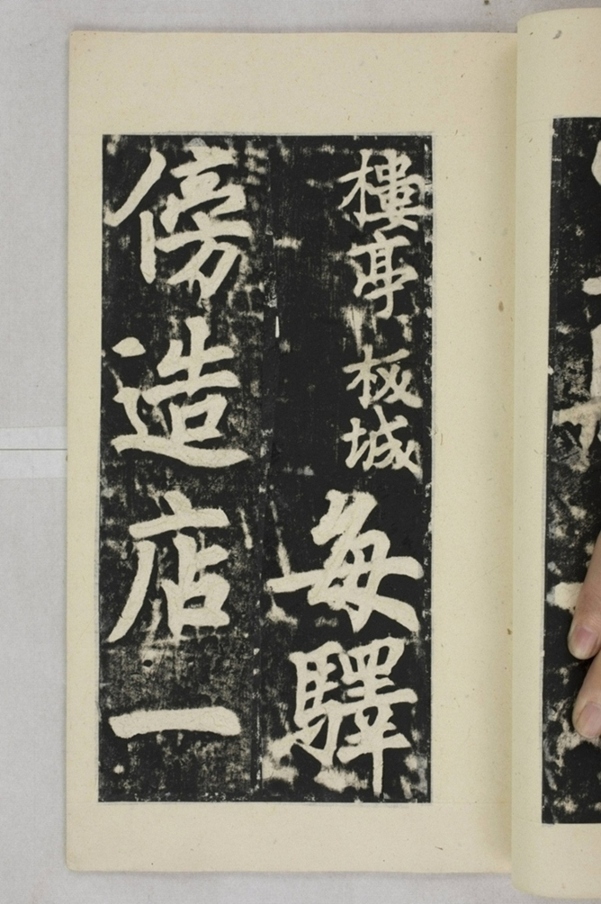 樓亭 板城 每驛
傍造店一